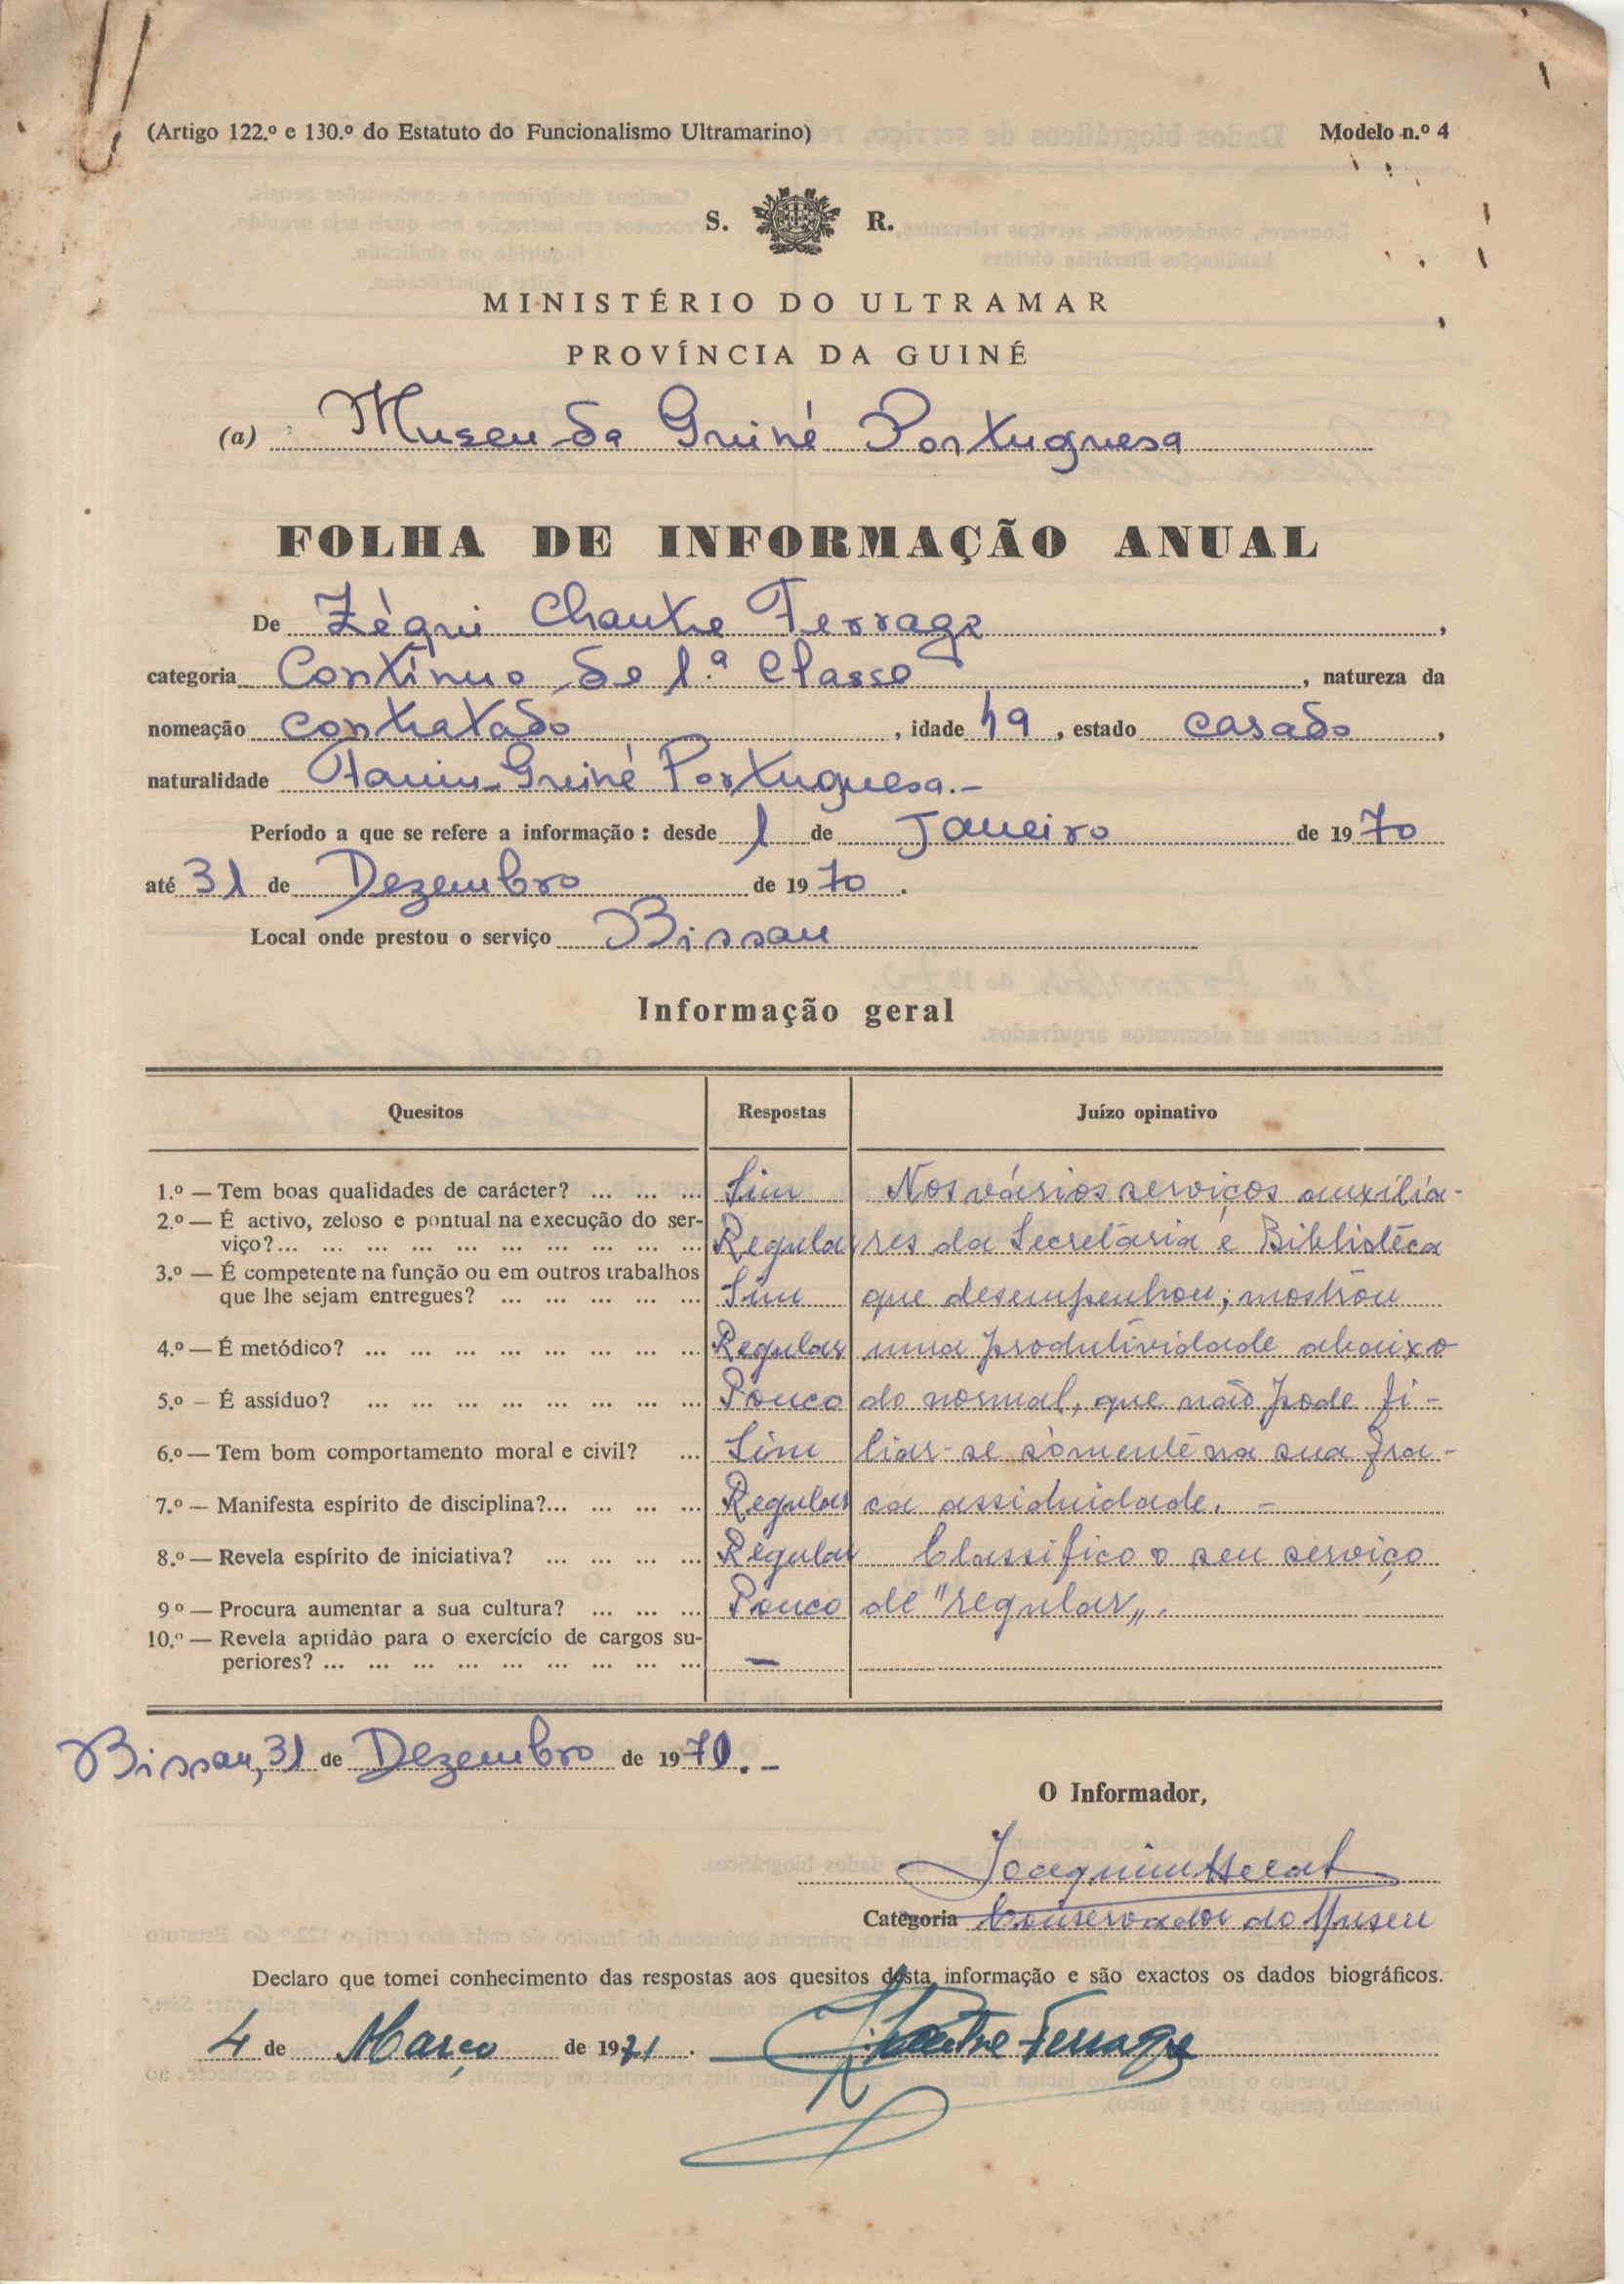 (Artigo 122.º e 130.º do Estatuto do Funcionalismo Ultramarino) Modelo n.º 4
S. R.
MINISTÉRIO DO ULTRAMAR
PROVÍNCIA DA GUINÉ
(a) Museu da Guiné Portuguesa
FOLHA DE INFORMAÇÃO ANUAL
De Zéqui Chantre Ferrage,
categoria Contínuo de 1.ª Classe, natureza da
nomeação contratado, idade 49, estado casado,
naturalidade Guiné Portuguesa.-
Período a que se refere a informação: desde 1 de Janeiro de 1970
até 31 de Dezembro de 1970.
Local onde prestou o serviço Bissau
Informação geral
Quesitos Respostas Juízo opinativo
1.º — Tem boas qualidades de carácter? ... ... ... Sim Nos vários serviços auxilia-
2.º — É activo, zeloso e pontual na execução do ser-
viço?... ... ... ... ... ... ... ... ... ... Regular res da Secretaria e Biblioteca
3.º — É competente na função ou em outros trabalhos
que lhe sejam entregues? ... ... ... ... ... Sim que desempenhou, mostrou
4.º — É metódico? ... ... ... ... ... ... ... ... Regular uma produtividade abaixo
5.º — É assíduo? ... ... ... ... ... ... ... ... Pouco do normal, que não pode fi-
6.º — Tem bom comportamento moral e civil? ... Sim liar-se sòmente na sua fra-
7.º — Manifesta espírito de disciplina?... ... ... ... Regular ca assiduidade. -
8.º — Revela espírito de iniciativa? ... ... ... ... Regular Classifico o seu serviço
9º — Procura aumentar a sua cultura? ... ... ... Pouco de "regular".
10.º — Revela aptidão para o exercício de cargos su-
periores? ... ... ... ... ... ... ... ... ... —
Bissau, 31 de Dezembro de 1970.-
O Informador,
Joaquim
Categoria Conservador do Museu
Declaro que tomei conhecimento das respostas aos quesitos desta informação e são exactos os dados biográficos.
4 de Março de 1971. Z. Chantre Ferrage